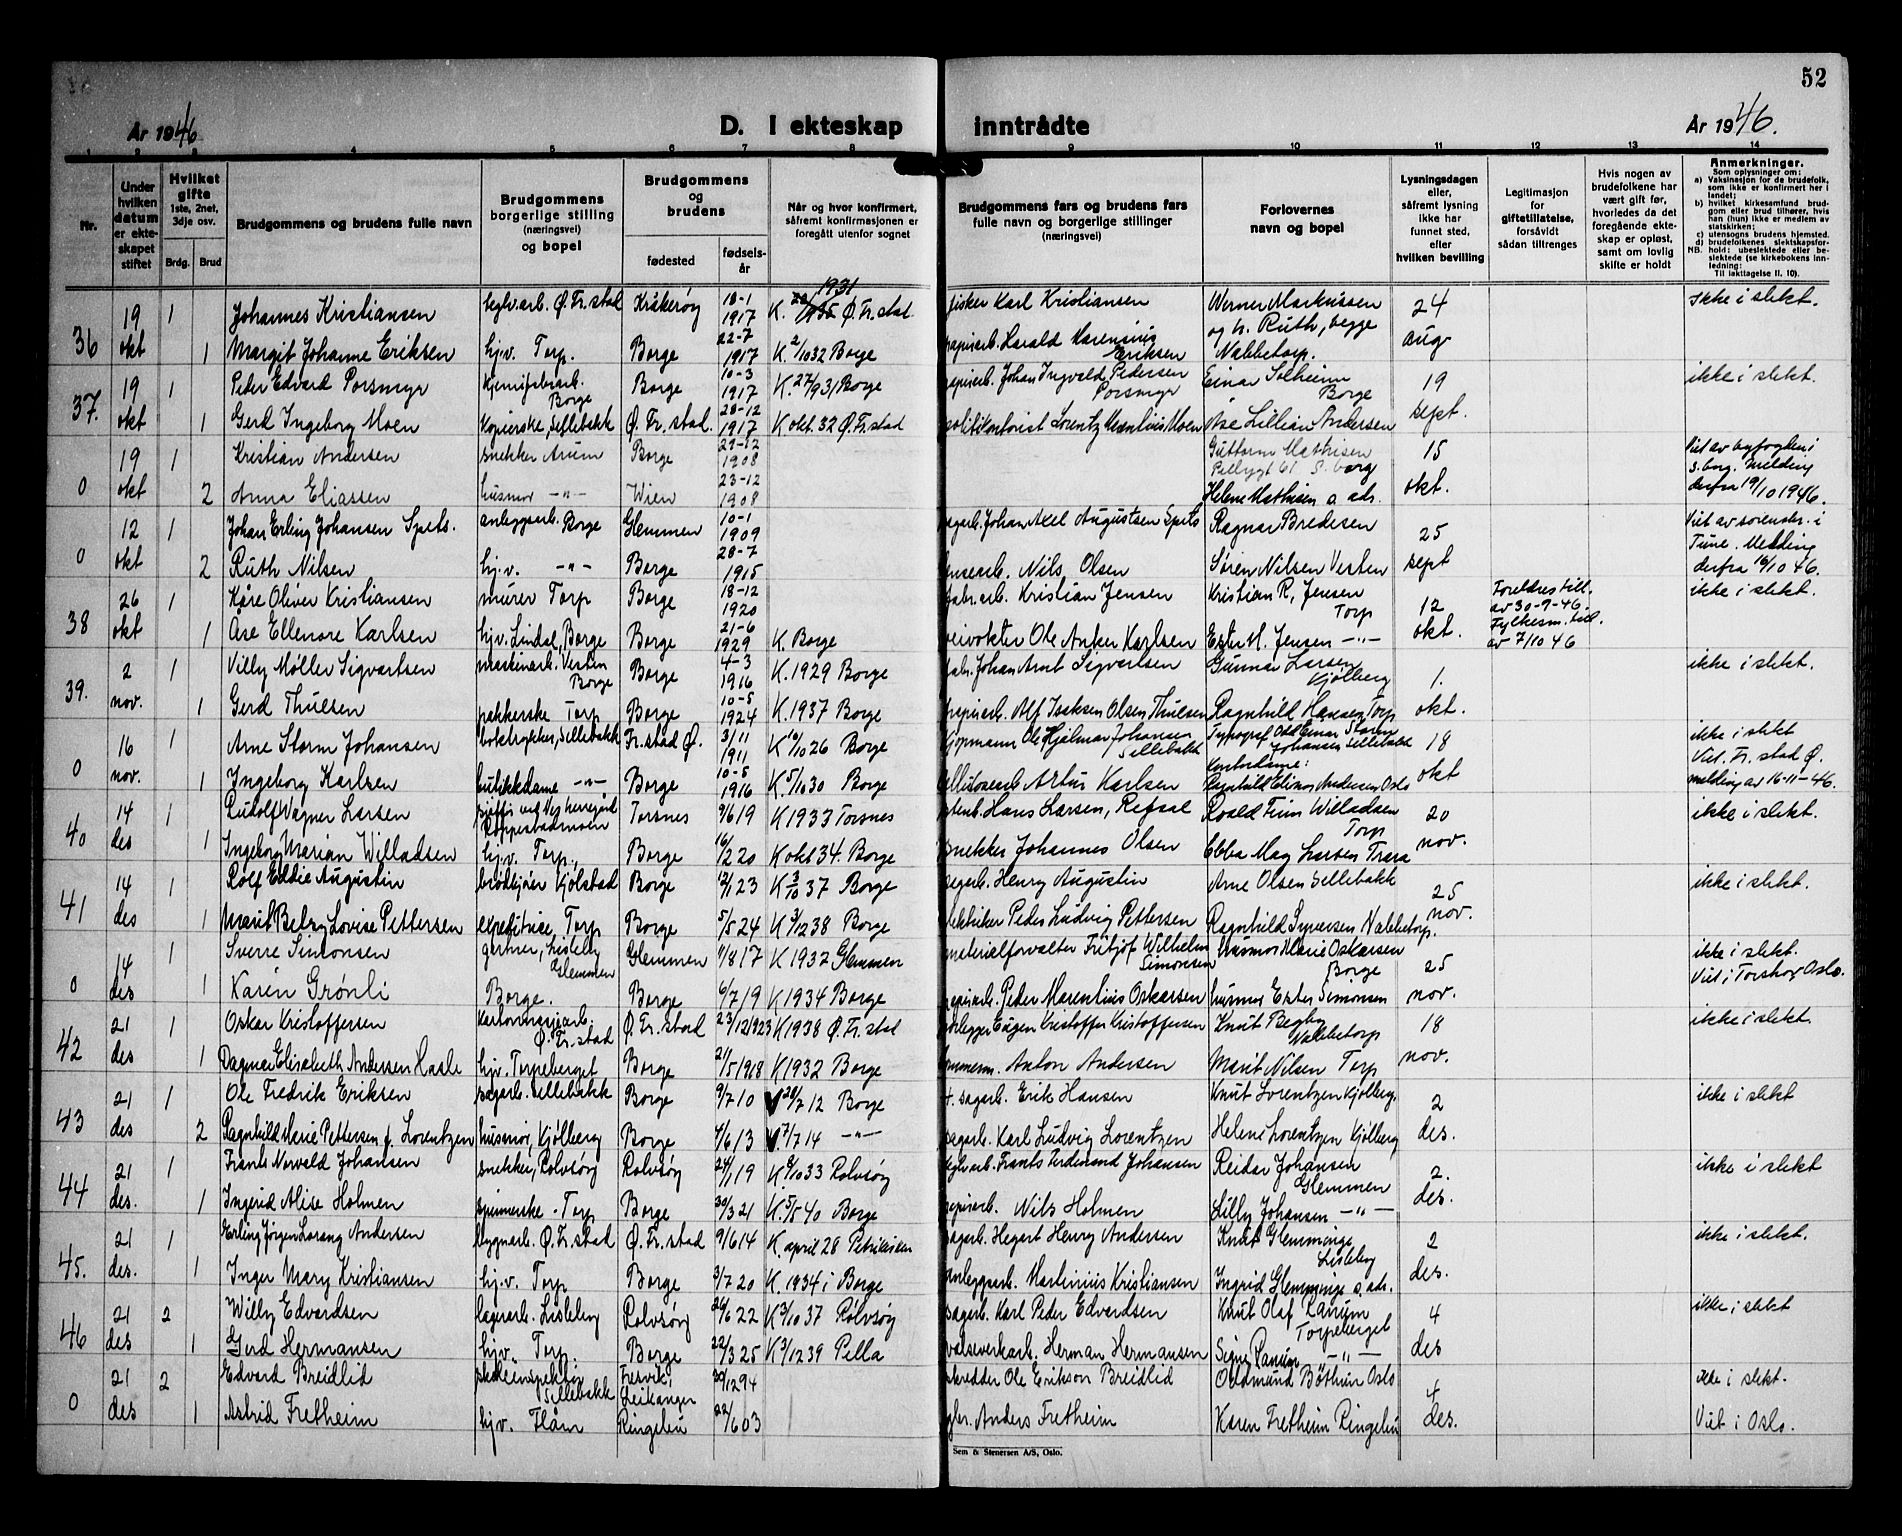 52
År 1946
D. I ekteskap inntrådte
År 1946.
1 2 3 4 5 6 7 8 9 10 11 12 13 14
Nr.
Under hvilken datum er ekteskapet stiftet
Hvilket gifte 1ste, 2net, 3dje osv.
Brdg. Brud
Brudgommens og brudens fulle navn
Brudgommens borgerlige stilling (næringsvei) og bopel
Brudgommens og brudens
fødested
fødselsår
Når og hvor konfirmert, såfremt konfirmasjonen er foregått utenfor sognet
Brudgommens fars og brudens fars fulle navn og borgerlige stillinger (næringsvei)
Forlovernes navn og bopel
Lysningsdagen eller, såfremt lysning ikke har funnet sted, efter hvilken bevilling
Legitimasjon for giftetillatelse, forsåvidt sådan tiltrenges
Hvis nogen av brudefolkene har vært gift før, hvorledes da det foregående ekteskap er opløst, samt om lovlig skifte er holdt
Anmerkninger.
Som oplysninger om:
a) Vaksinasjon for de brudefolk, som ikke er konfirmert her i landet;
b) hvilket kirkesamfund brudgom eller brud tilhører, hvis han (hun) ikke er medlem av statskirken;
c) utensogns brudens hjemsted.
d) brudefolkenes slektskapsforhold: ubeslektede eller beslektede (se kirkebokens innledning:
Til iakttagelse II. 10).
36 19 okt 1 Johannes Kristiansen teglv.arb. Ø. Fr.stad Kråkerøy 18-1 1917 K. 1931 Ø. Fr. stad fisker Karl Kristiansen Werner Markussen og h. Ruth, begge Nabbetorp. 24 aug ikke i slekt.
1 Margit Johanne Eriksen hj.v. Torp. Borge 22-7 1917 K. 2/10 32 Borge papirarb. Harald Eriksen
37. 19 okt 1 Peder Edvard Porsmyr Borge Borge 10-3 1917 K. 27/9 31 Borge papirarb. Johan Ingvald Pedersen Porsmyr Einar Solheim Borge 19 sept. ikke i slekt.
1 Gerd Ingeborg Moen kopierske, Sellebakk Ø. Fr. stad. 28-12 1917 K okt. 32 Ø. Fr. stad politikonst. Lorentz Moen Åse Lillian Andersen
0 19 okt 1 Kristian Andersen snekker Årum Borge 1908 Guttorm Mathisen S. borg 15 okt. Viet av byfogden i S. borg. Melding derfra 19/10 1946.
2 Anna Eliassen husmor -"- Wien 23-12 1908 Helene Mathisen s. adr.
0 12 okt 1 Johan Erling Johansen Spets. anleggsarb. Borge Glemmen 10-1 1909 sagarb. Johan Axel Augustsen Spets Ragnar Bredesen 25 sept Viet av sorenskr. i Tune. Melding derfra 16/10 46.
2 Ruth Nilsen hj.v. -"- Borge 28-7 1915 Nils Olsen Søren Nilsen Vesten
38 26 okt 1 Kåre Oliver Kristiansen murer Torp Borge 18-12 1920 fabr.arb. Kristian Jensen Kristian R. Jensen Torp 12 okt. Foreldres till. av 30-9-46. Fylkesm. till. av 7/10 46 ikke i slekt.
1 Åse Ellenore Karlsen hj.v. Lindal, Borge Borge 21-6 1929 K. Borge veivokter Ole Anker Karlsen Ester M. Jensen -"-
39. 2 nov. 1 Villy Møller Sigvartsen maskinarb. Vesten Borge Borge 4-3 1916 K. 1929 Borge fabr. Johan Arnt Sigvartsen Gunnar Larsen Kjølberg 1. okt. ikke i slekt.
1 Gerd Thulsen pakkerske Torp Borge 10-5 1924 K. 1937 Borge papirarb. Alf Isaksen Olsen Thulsen Ragnhild Hansen Torp
0 16 nov. 1 Arne Storm Johansen boktrykker, Sellebakk Fr. stad Ø. 3/11 1911 K 10/10 26 Borge kjøpmann Ole Hjalmar Johansen Sellebakk Typograf Odd Einar Storm Johansen Sellebakk 18 okt ikke i slekt Viet. Fr. stad Ø. melding av 16-11-46.
1 Ingeborg Karlsen butikkdame -"- Borge 10-5 1916 K. 5/10 30 Borge Artur Karlsen Kontordame: Ragnhild Elinor Andersen, Oslo
40 14 des 1 Rudolf Vagner Larsen Torsnes 9/6 19 K 1933 Torsnes Hans Larsen, Refsal Roald Finn Willadsen Torp 20 nov. ikke i slekt.
1 Ingeborg Marian Willadsen hj.v. Torp. Borge 16/2 20 K okt 34. Borge snekker Johannes Olsen Ebba May Larsen Trara
41 14 des 1 Rolf Eddie Augustin brødkjører Kjølstad Borge 12/1 23 K 3/10 37 Borge sagarb. Henry Augustin Arne Olsen Sellebakk 25 nov. ikke i slekt.
1 Marit Betzy Lovise Pettersen expeditrise, Torp Borge 5/5 24 K 3/12 38 Borge elektriker Peder Ludvig Pettersen Ragnhild Syversen Nabbetorp.
0 14 des 1 Sverre Simonsen gartner, Lisleby Glemmen Glemmen 1/8 17 K 1932 Glemmen materialforvalter Fritjof Wilhelm Simonsen husmor Marie Oskarsen Borge 25 nov. ikke i slekt. Viet i Torshov, Oslo.
1 Karen Grønli Borge. Borge 6/7 19 K 1934 Borge papirarb. Peder Marentius Oskarsen husmor Ester Simonsen
42 21 des 1 Oskar Kristoffersen Ø. Fr. stad Ø. Fr. stad 23/12 1923 K 1938 Ø. Fr. stad rørlegger Eugen Kristoffer Kristoffersen Knut Begby Nabbetorp 18 nov. ikke i slekt.
1 Dagmar Elisabeth Andersen Hasle hj.v. Torpeberget Borge 21/5 1918 K 1932 Borge tømmerm. Anton Andersen Marit Nilsen Torp
43 21 des 1 Ole Fredrik Eriksen sagarb. Sellebakk Borge 9/7 10 V 28/7 12 Borge f. sagarb. Erik Hansen Knut Lorentzen Kjølberg. 2 des. ikke i slekt
2 Ragnhild Marie Pettersen f. Lorentzen husmor, Kjølberg Borge 4/6 13 V. 7/7 14 -"- sagarb. Karl Ludvig Lorentzen Helene Lorentzen Kjølberg
44 21 des. 1 Frants Norvald Johansen snekker, Rolvsøy Rolvsøy 24/1 19 K. 9/10 33 Rolvsøy teglv.arb. Frants Ferdinand Johansen Reidar Johansen Glemmen 2. des. ikke i slekt
1 Ingerid Alise Holmen spinnerske - Torp Borge 30/3 21 K. 5/5 40 Borge papirarb. Nils Holmen Lilly Johansen -"-
45. 21 des. 1 Erling Jørgen Lorang Andersen bygn.arb. Ø. Fr. stad Ø. Fr. stad 9/6 14 K. april 28 Petrikirken sagarb. Hegart Henry Andersen Knut Glemminge Lisleby 2 des. ikke i slekt.
1 Inger Mary Kristiansen hj.v. Torp Borge 3/7 20 K. 1934 i Borge anleggsarb. Martinius Kristiansen Ingrid Glemminge s. adr.
46 21 des 2 Willy Edvardsen lagerarb. Lisleby Rolvsøy 24/6 22 K 3/10 37 Rolvsøy sagarb. Karl Peder Edvardsen Knut Olaf Ranum Torpeberget 4 des ikke i slekt
1 Gerd Hermansen hj.v. Torp Borge 22/3 25 K 3/12 39 Pella valseverkarb. Herman Hermansen Signe Ranum -"-
0 21 des 2 Edvard Breidlid skoleinspektør Sellebakk Fresvik, Leikanger 30/12 94 skredder Ole Erikson Breidlid Oddmund Bøthun Oslo 4 des. ikke i slekt.
1 Astrid Fretheim hj.v. Flåm Ringebu 22/6 03 gbr. Anders Fretheim Karen Fretheim Ringebu Viet i Oslo.
Sem & Stenersen A/S, Oslo.